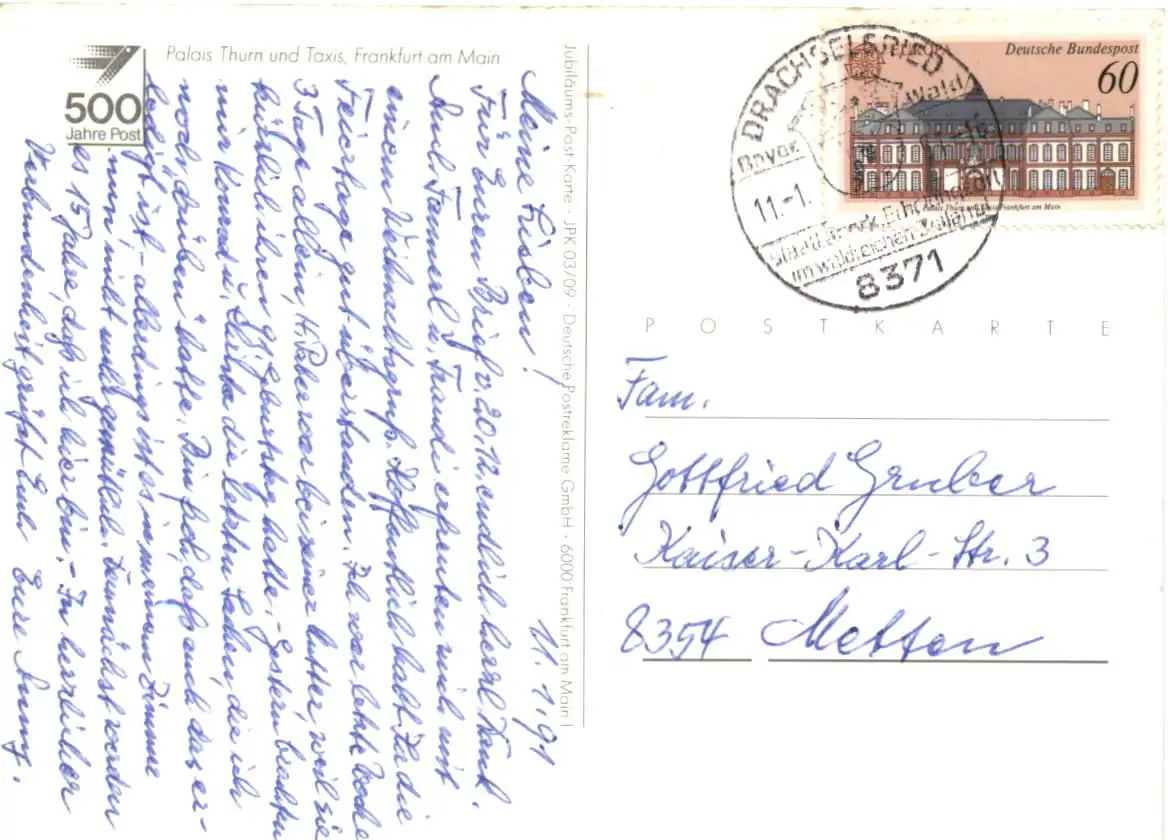 500
Jahre Post
Palais Thurn und Taxis, Frankfurt am Main
11.1.91
Meine Lieben!
Für Euren Brief v. 20.12. endlich herzl. Dank.
Auch Fannerl u. Traudi erfreuten mich mit
einem Weihnachtsgruß. Hoffentlich habt Ihr die
Feiertage gut überstanden. Ich war letzte Woche
3 Tage allein, H. Pater war bei seiner Mutter, weil sie
kürzlich ihren Geburtstag hatte. - Gestern brachten
mir Konrad u. Christa die letzten Sachen, die ich
noch "drüben" hatte. Bin froh, daß auch das er-
ledigt ist - allerdings ist es in meinem Zimmer
nun nicht mehr gemütlich. Demnächst werden
es 15 Jahre, daß ich hier bin. - In herzlicher
Verbundenheit grüßt Euch Eure Anny.
Jubiläums-Post-Karte · JPK 03/09 · Deutsche Postreklame GmbH · 6000 Frankfurt am Main 1
DRACHSELSRIED
Bayer. Wald
11.-1.
Erholungsort
im waldreichen Zellertal
8371
Deutsche Bundespost
60
Palais Thurn und Taxis, Frankfurt am Main
POSTKARTE
Fam.
Gottfried Gruber
Kaiser-Karl-Str. 3
8354 Metten